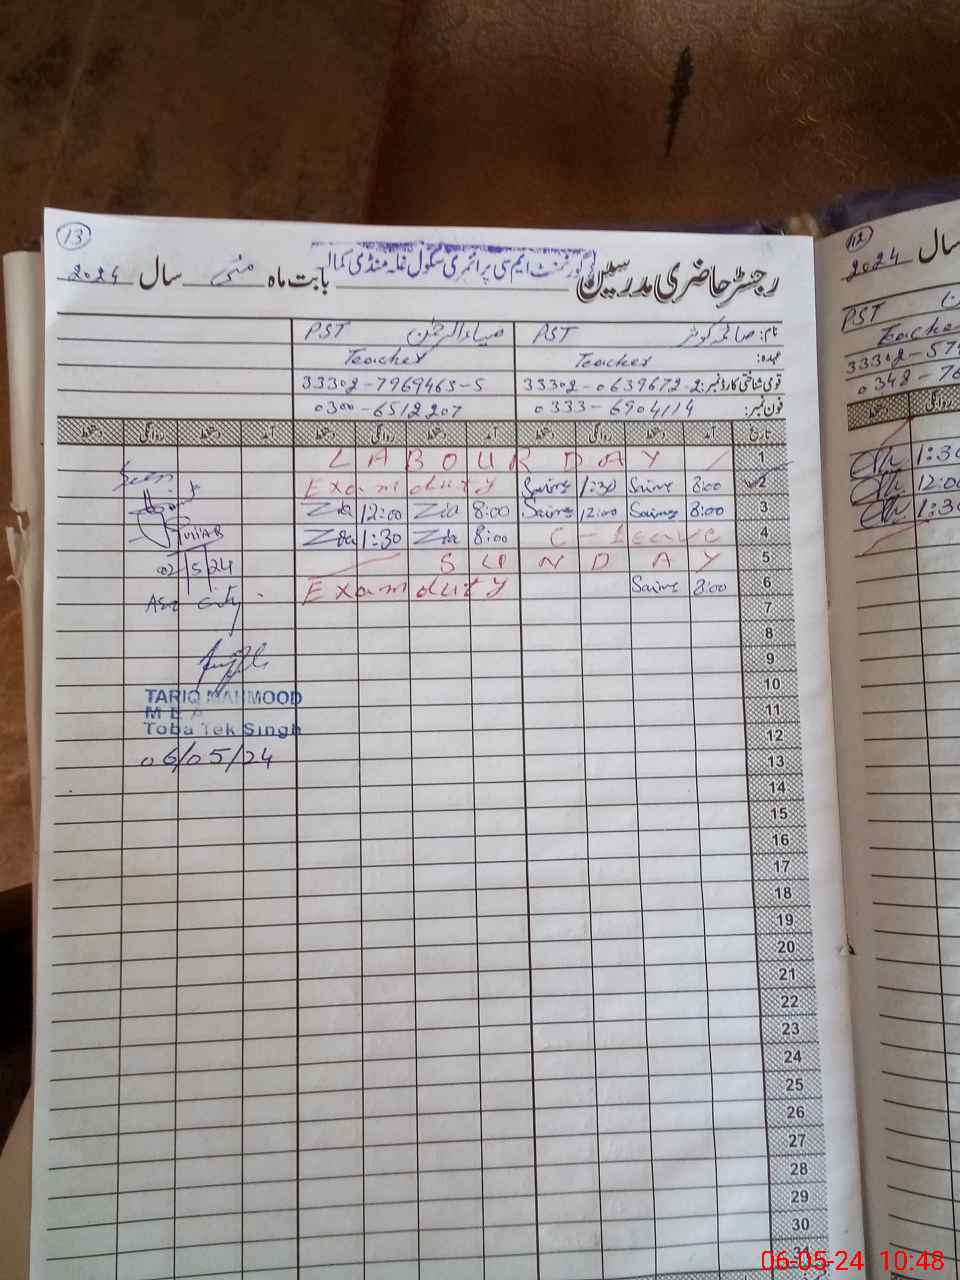 13
رجسٹر حاضری مدرسین گورنمنٹ ایم سی پرائمری سکول غلہ منڈی کمالیہ بابت ماہ مئی سال 2024
نام: صائمہ کوثر PST ضیاء الرحمن PST
عہدہ: Teacher Teacher
قومی شناختی کارڈ نمبر: 33302-0639672-2 33302-7969465-5
فون نمبر: 0333-6904114 0300-6512207
تاریخ آمد دستخط روانگی دستخط آمد دستخط روانگی دستخط آمد دستخط روانگی دستخط
1 LABOUR DAY
2 8:00 Saima 1:30 Saima Exam duty
3 8:00 Saima 12:00 Saima 8:00 Zia 12:00 Zia
4 C-leave 8:00 Zia 1:30 Zia
5 SUNDAY
6 8:00 Saima Exam duty
7
8
9
10
11
12
13
14
15
16
17
18
19
20
21
22
23
24
25
26
27
28
29
30
31
Seen
02/5/24
city
TARIQ MAHMOOD
M E A
Toba Tek Singh
06/05/24
12
سال 2024
PST
Teacher
33302-57
0348-76
روانگی دستخط
1:30
12:00
1:30
06-05-24 10:48